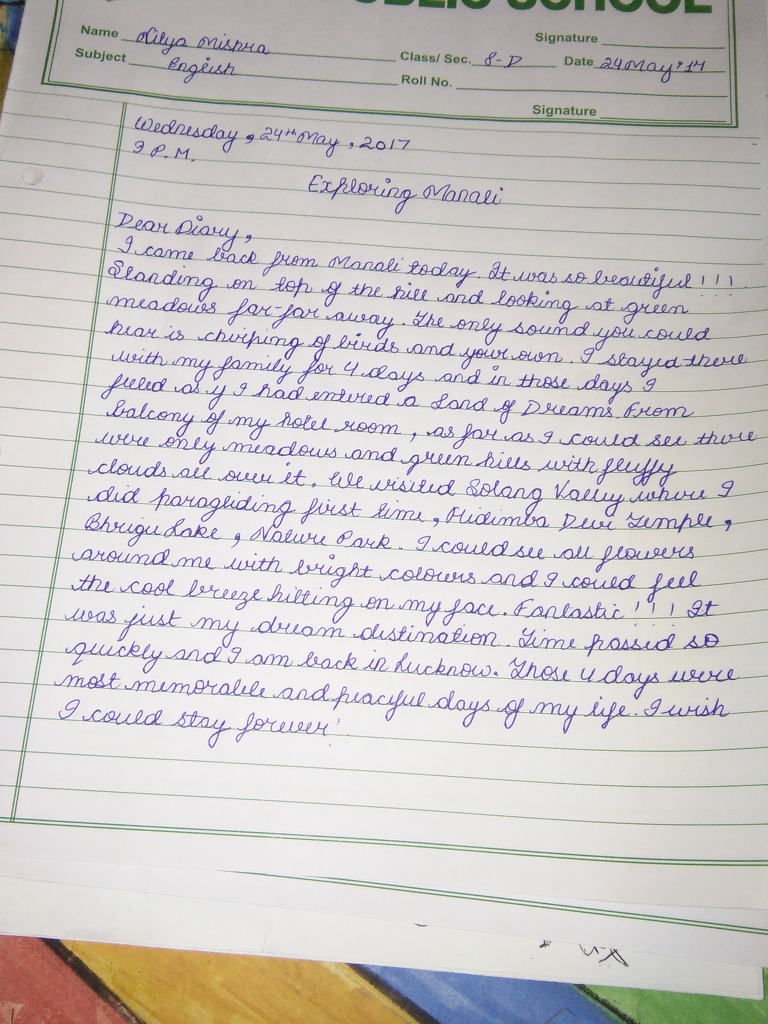 PUBLIC SCHOOL
Name Nitya Mishra
Signature
Subject English
Class/ Sec. 8-D Date 24 May'17
Roll No.
Signature
Wednesday, 24th May, 2017
9 P.M.
Exploring Manali
Dear Diary,
I came back from Manali today. It was so beautiful!!!
Standing on top of the hill and looking at green
meadows far-far away. The only sound you could
hear is chirping of birds and your own. I stayed there
with my family for 4 days and in those days I
feeled as if I had entered a Land of Dreams. From
balcony of my hotel room, as far as I could see there
were only meadows and green hills with fluffy
clouds all over it. We visited Solang Valley where I
did paragliding first time, Hidimba Devi Temple,
Bhrigu Lake, Nature Park. I could see all flowers
around me with bright colours and I could feel
the cool breeze hitting on my face. Fantastic!!! It
was just my dream distination. Time passed so
quickly and I am back in Lucknow. Those 4 days were
most memorable and peaceful days of my life. I wish
I could stay forever!